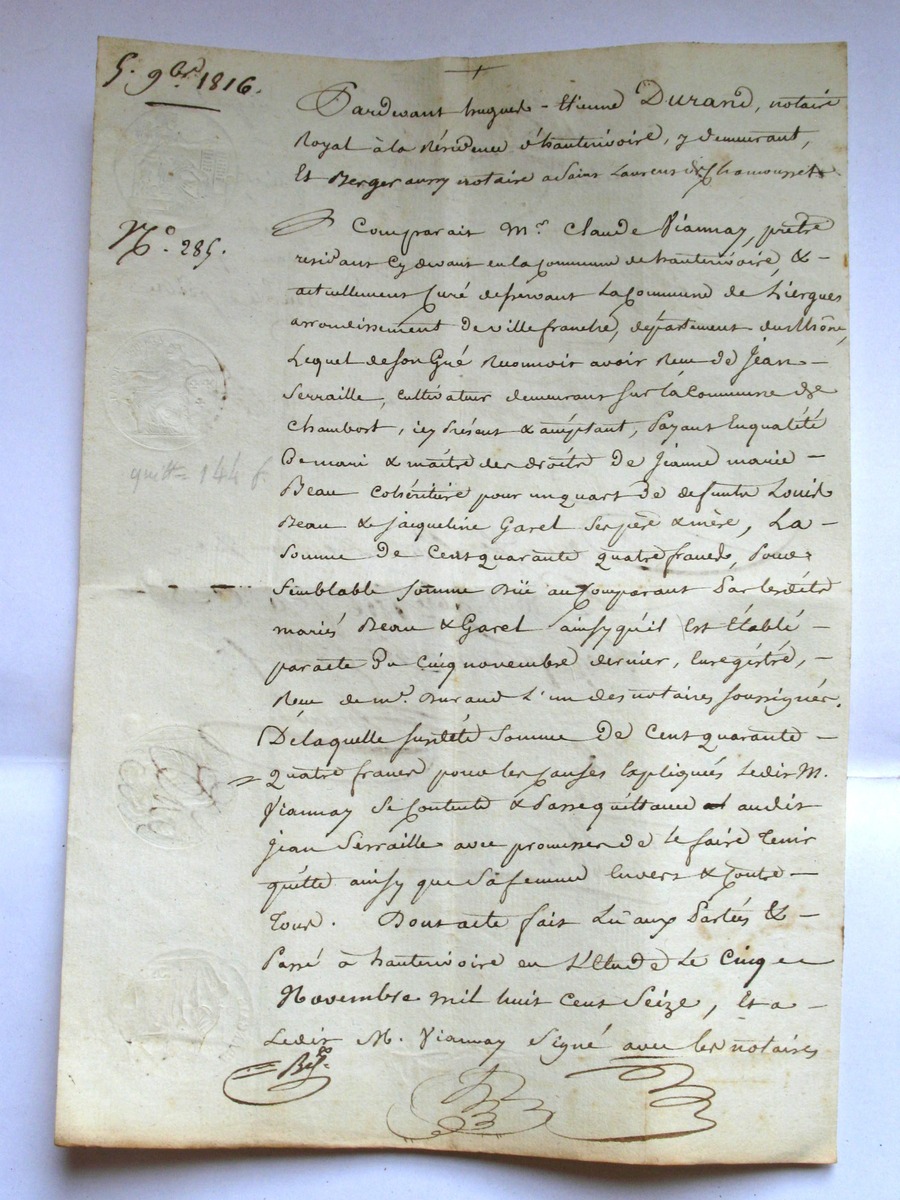 5. 9bre 1816.
Pardevant hugues-Etienne Durand, notaire
Royal à la Résidence d'hauterivoire, y demeurant,
Et Berger aussy notaire a Saint Laurent de Chamousset
N.° 285.
Comparait Mr. Claude Viannay, prêtre
residant Cy devant en la Commune de hauterivoire, &
actuellement Curé deservant la Commune de Liergues
arrondissement de villefranche, département du Rhône,
Lequel de son Gré Reconnoit avoir Reçu de Jean
Serraille, Cultivateur demeurant sur la Commune de
Chambost, icy Présent & acceptant, Payant En qualité
De mari & maître des droits de Jeanne marie
quitt= 144 f.
Beau Cohéritière pour un quart de defunts Louis
Beau & jacqueline Garel ses père & mère, La
Somme de Cent quarante quatre francs, Pour
Semblable Somme Düe au Comparant Par lesdits
mariés Beau & Garel ainsy qu'il Est Etabli
par acte Du Cinq novembre dernier, Enregistré,
Reçu de mr. Durand L'un des notaires soussignés.
De laquelle susdite Somme De Cent quarante
quatre francs pour les Causes Expliquées Ledit M.
Viannay Se Contente & Passe quittance audit
jean Serraille avec promesse de le faire Tenir
quitte ainsy que Sa femme Envers & Contre
Tous. Dont acte fait Lu aux Parties &
Passé à hauterivoire en L'Etude Le Cinq
Novembre mil huit Cent Seize, Et a
Ledit M. Viannay Signé avec les notaires